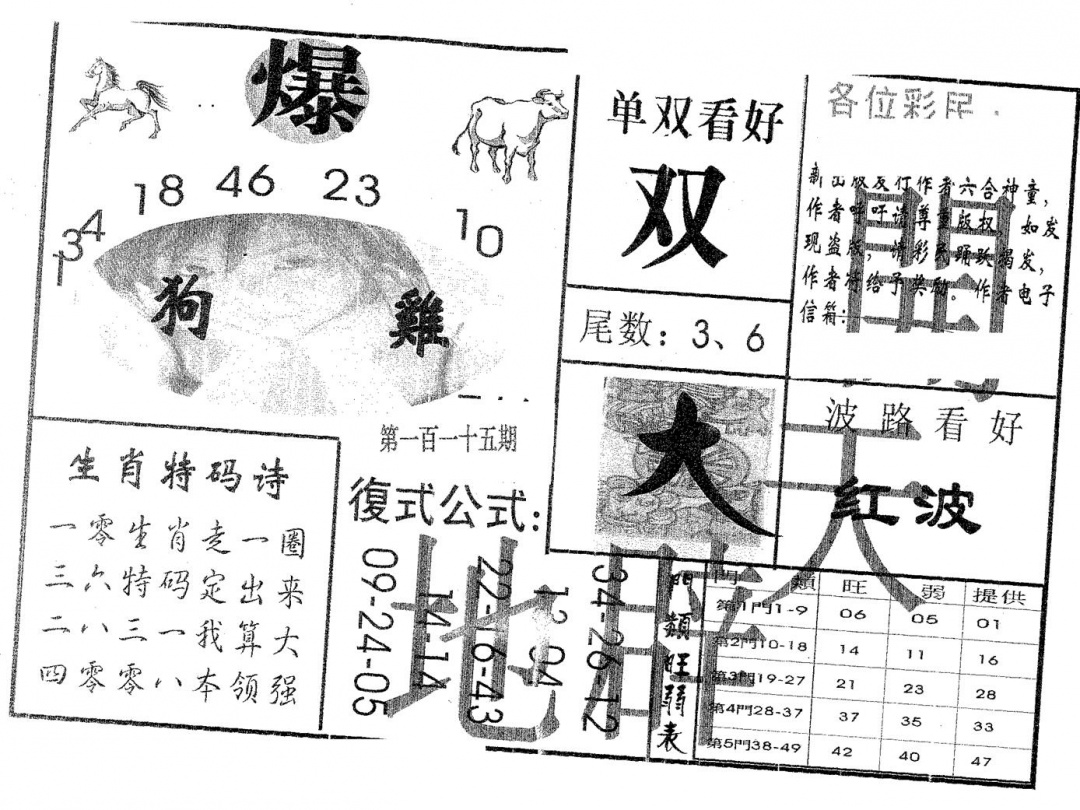 爆
18 46 23
34
10
1
狗 雞
单双看好
双
尾数：3、6
各位彩民
作者六合神童，
作者呼吁请尊重版权，如发
现盗版，请彩民踊跃揭发，
作者将给予奖励。作者电子
信箱：
大
波路看好
红波
第一百一十五期
生肖特码诗
一零生肖走一圈
三六特码定出来
二八三一我算大
四零零八本领强
復式公式：
09-24-05
14-14
22-16-43
12-04
34-26-12
門類旺弱表
門類 旺 弱 提供
第1門1-9 06 05 01
第2門10-18 14 11 16
第3門19-27 21 23 28
第4門28-37 37 35 33
第5門38-49 42 40 47